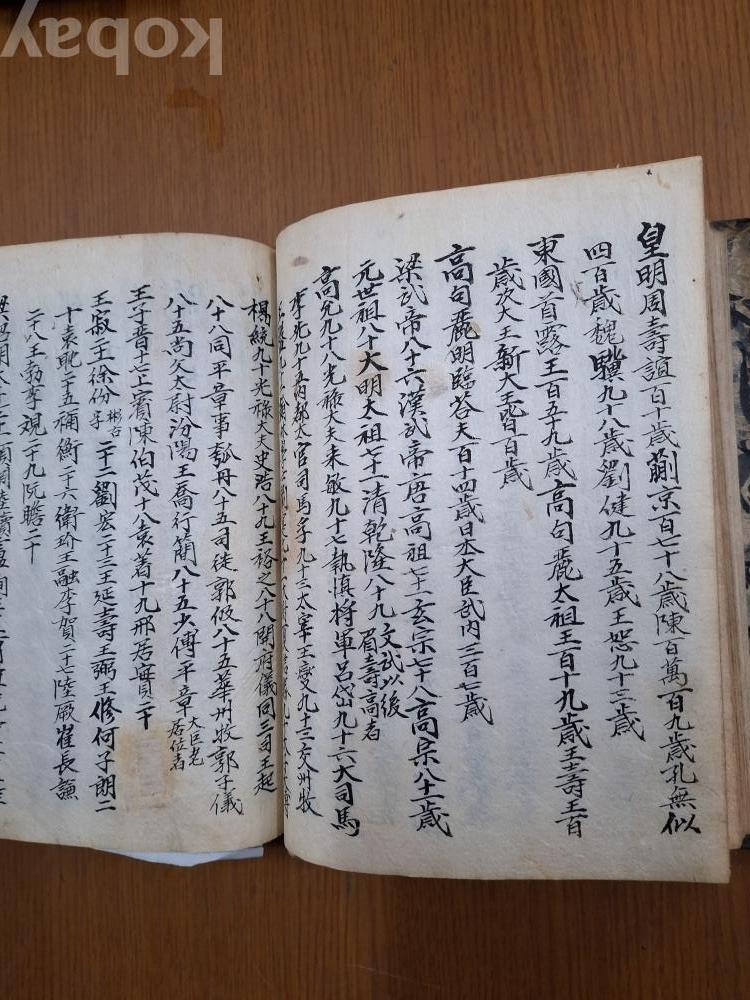 皇明周壽誼百十歲蒯京百七十八歲陳百萬百九歲孔無似
四百歲魏驥九十八歲劉健九十五歲王恕九十三歲
東國首露王百五十九歲高句麗太祖王百十九歲王壽王百
歲次大王新大王皆百歲
高句麗明臨答夫百十四歲日本大臣武內三百七歲
梁武帝八十六漢武帝唐高祖七十一玄宗七十八高宗八十一歲
元世祖八十大明太祖七十一淸乾隆八十九 文武以後 眉壽高者
高允九十八光祿大夫來敏九十七執愼將軍呂岱九十六大司馬
李先九十五內都太官司馬孚九十三太宰王燮九十三交州牧
楊統九十光祿大夫史浩八十九王裕之八十八開府儀同三司王起
八十八同平章事瓠丹八十五司徒郭伋八十五華州牧郭子儀
八十五尚父太尉汾陽王喬行簡八十五少傅平章 大臣老 居位者
王子晋十七上賓陳伯茂十八袁著十九邢居實二十
王寂二王徐份 二十二劉宏二十三王延壽王弼王修何子朗二
十袁耽二十五禰衡二十六衛玠王融李賀二十七陸厥崔長謙
二十八王勃李觀二十九阮瞻三十